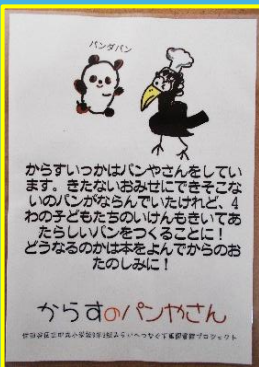 パンダパン
からすいっかはパンやさんをしてい
ます。きたないおみせにできそこな
いのパンがならんでいたけれど、4
わの子どもたちのいけんもきいてあ
たらしいパンをつくることに！
どうなるのかは本をよんでからのお
たのしみに！
からすのパンやさん